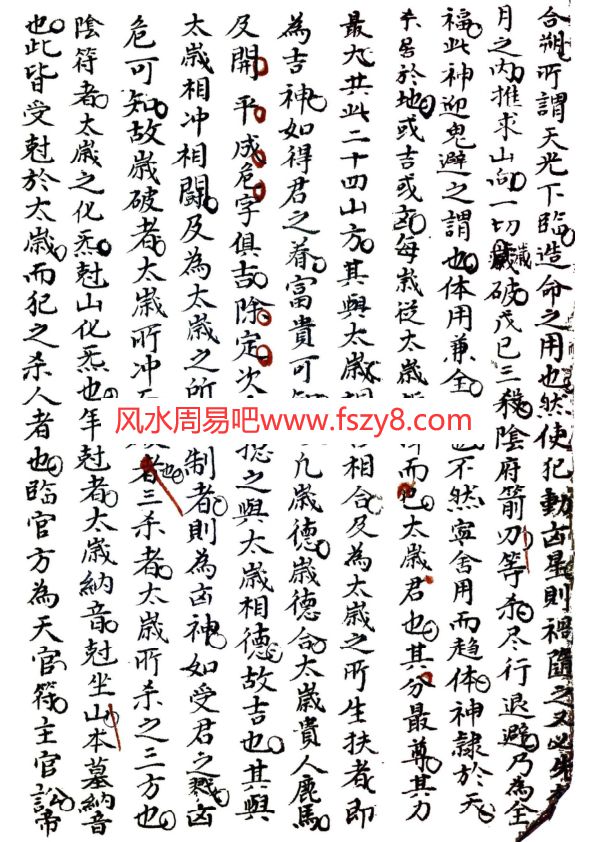 合朔所謂天光下臨造命之用也然使犯動凶星則禍隨之又必先
月之内推求山向一切破戊已三殺陰府箭刃等杀尽行退避乃為全
福此神迎鬼避之謂也体用兼全也不然寧舍用而趋体神隷於天
居於地或吉或凶每歲從太歲而也太歲君也其分最尊其力
最大其此二十四山方其與太歲相合及為太歲之所生扶者即
為吉神如得君之眷富貴可凡歲德歲德合太歲貴人鹿馬
及開平成危字俱吉除定次之與太歲相德故吉也其與
太歲相冲相鬪及為太歲之所制者則為凶神如受君之戮凶
危可知故歲破者太歲所冲也者三杀者太歲所杀之三方也
陰符者太歲之化炁尅山化炁也年尅者太歲納音尅坐山本墓納音
也此皆受尅於太歲而犯之杀人者也臨官方為天官符主官訟帝
风水周易吧www.fszy8.com